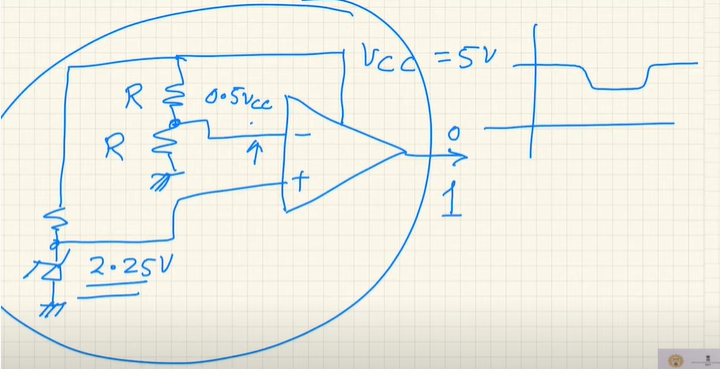 VCC = 5V
R
0.5VCC
R
-
0
+
1
2.25V